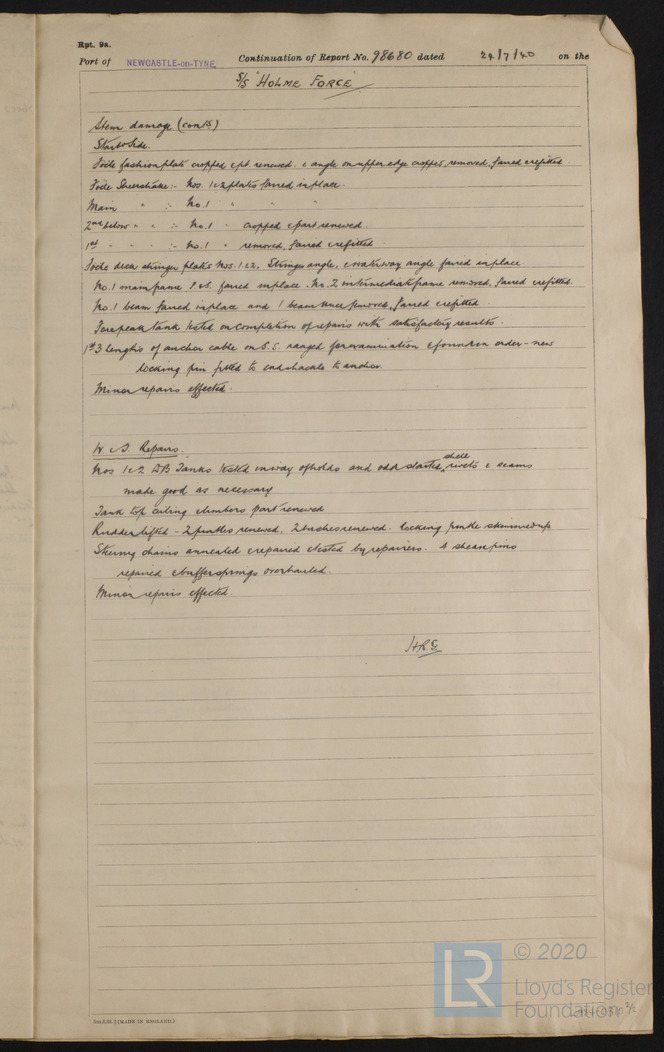 Rpt. 9a.
Port of NEWCASTLE-on-TYNE. Continuation of Report No. 98680 dated 24/7/40 on the
S/S "HOLME FORCE"
Stem damage (contd)
Starb Side.
Focle fashion plate cropped & pt. renewed. & angle on upper edge cropped, removed, faired & refitted
Focle Sheerstrake :- Nos. 1 & 2 plates faired in place.
Main " :- No. 1 " " "
2nd below " " :- No. 1 " cropped & part renewed.
1st " " " :- No. 1 " removed, faired & refitted
Focle deck stringer plates Nos. 1 & 2, Stringer angle, & waterway angle faired in place
No. 1 main frame, P & S. faired in place. No. 2 intermediate frame removed, faired & refitted.
No. 1 beam faired in place and 1 beam knee removed, faired & refitted
Forepeak tank tested on completion of repairs with satisfactory results.
1st 3 lengths of anchor cable on S.S. ranged for examination & found in order - new
locking pin fitted to end shackle to anchor.
Minor repairs effected.
W & T. Repairs.
Nos 1 & 2 DB Tanks tested in way of holds and odd started shell rivets & seams
made good as necessary
Tank top ceiling & limbers part renewed
Rudder lifted - 2 pintles renewed, 2 bushes renewed. locking pintle
Steering chains annealed & repaired & tested by repairers. 4 sheave pins
repaired & buffer springs overhauled.
Minor repairs effected.
HRG
(MADE IN ENGLAND.)
© 2020
LR
Lloyd's Register
Foundation